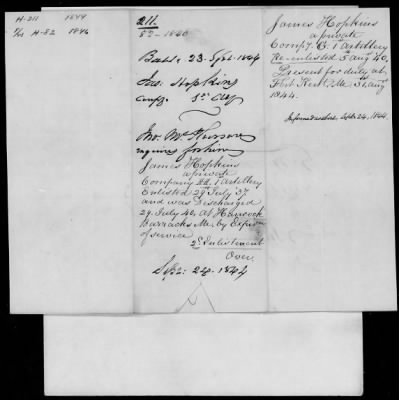 H-211 1844
H-82 1846
211.
Balt: 23. Sept. 1844
Jas. Hopkins
1st Arty
inquires for him
James Hopkins
a private
Company 1 Artillery
Enlisted 29 July 37
and was Discharged
29 July 40, At Hancock
Barracks Me. by Expir
of service
2d Enlistment
Over.
Sept: 24. 1844
James Hopkins
a private
Compy G. 1st Artillery
Re-enlisted 5 Aug 40,
Present for duty at
Fort Kent Me 31 Aug
1844.
Sept. 24, 1844.